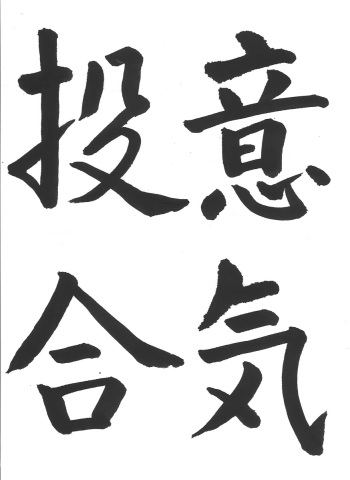 意気
投合